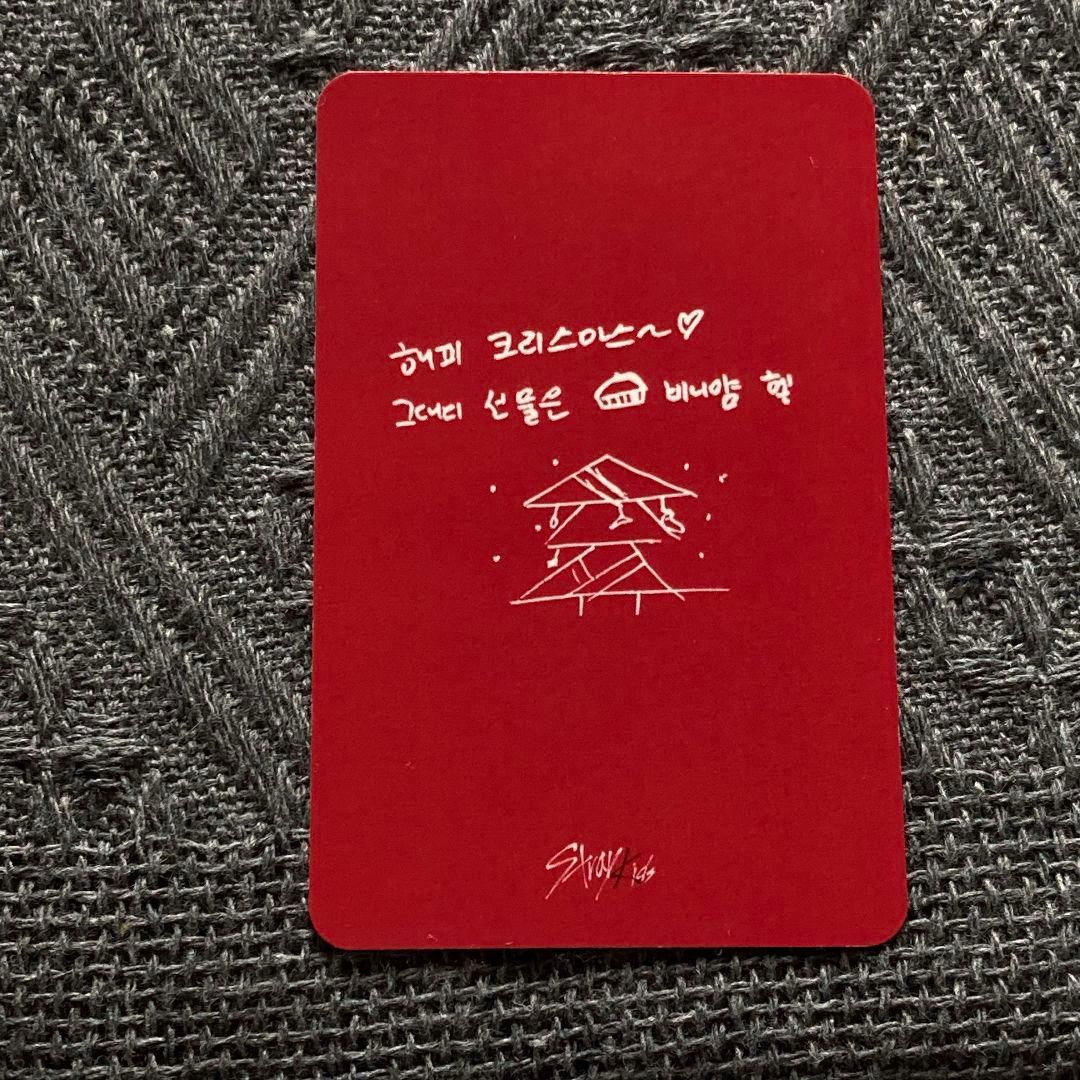 해피 크리스마스~♡
그대의 선물은 비니얌 헿
Stray Kids